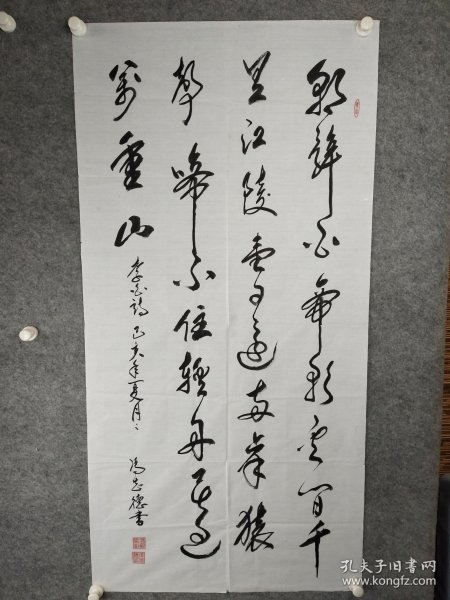 朝辞白帝彩云间千
里江陵一日还两岸猿
声啼不住轻舟已过
万重山
李白诗 己亥年夏月 冯志德书
孔夫子旧书网
www.kongfz.com